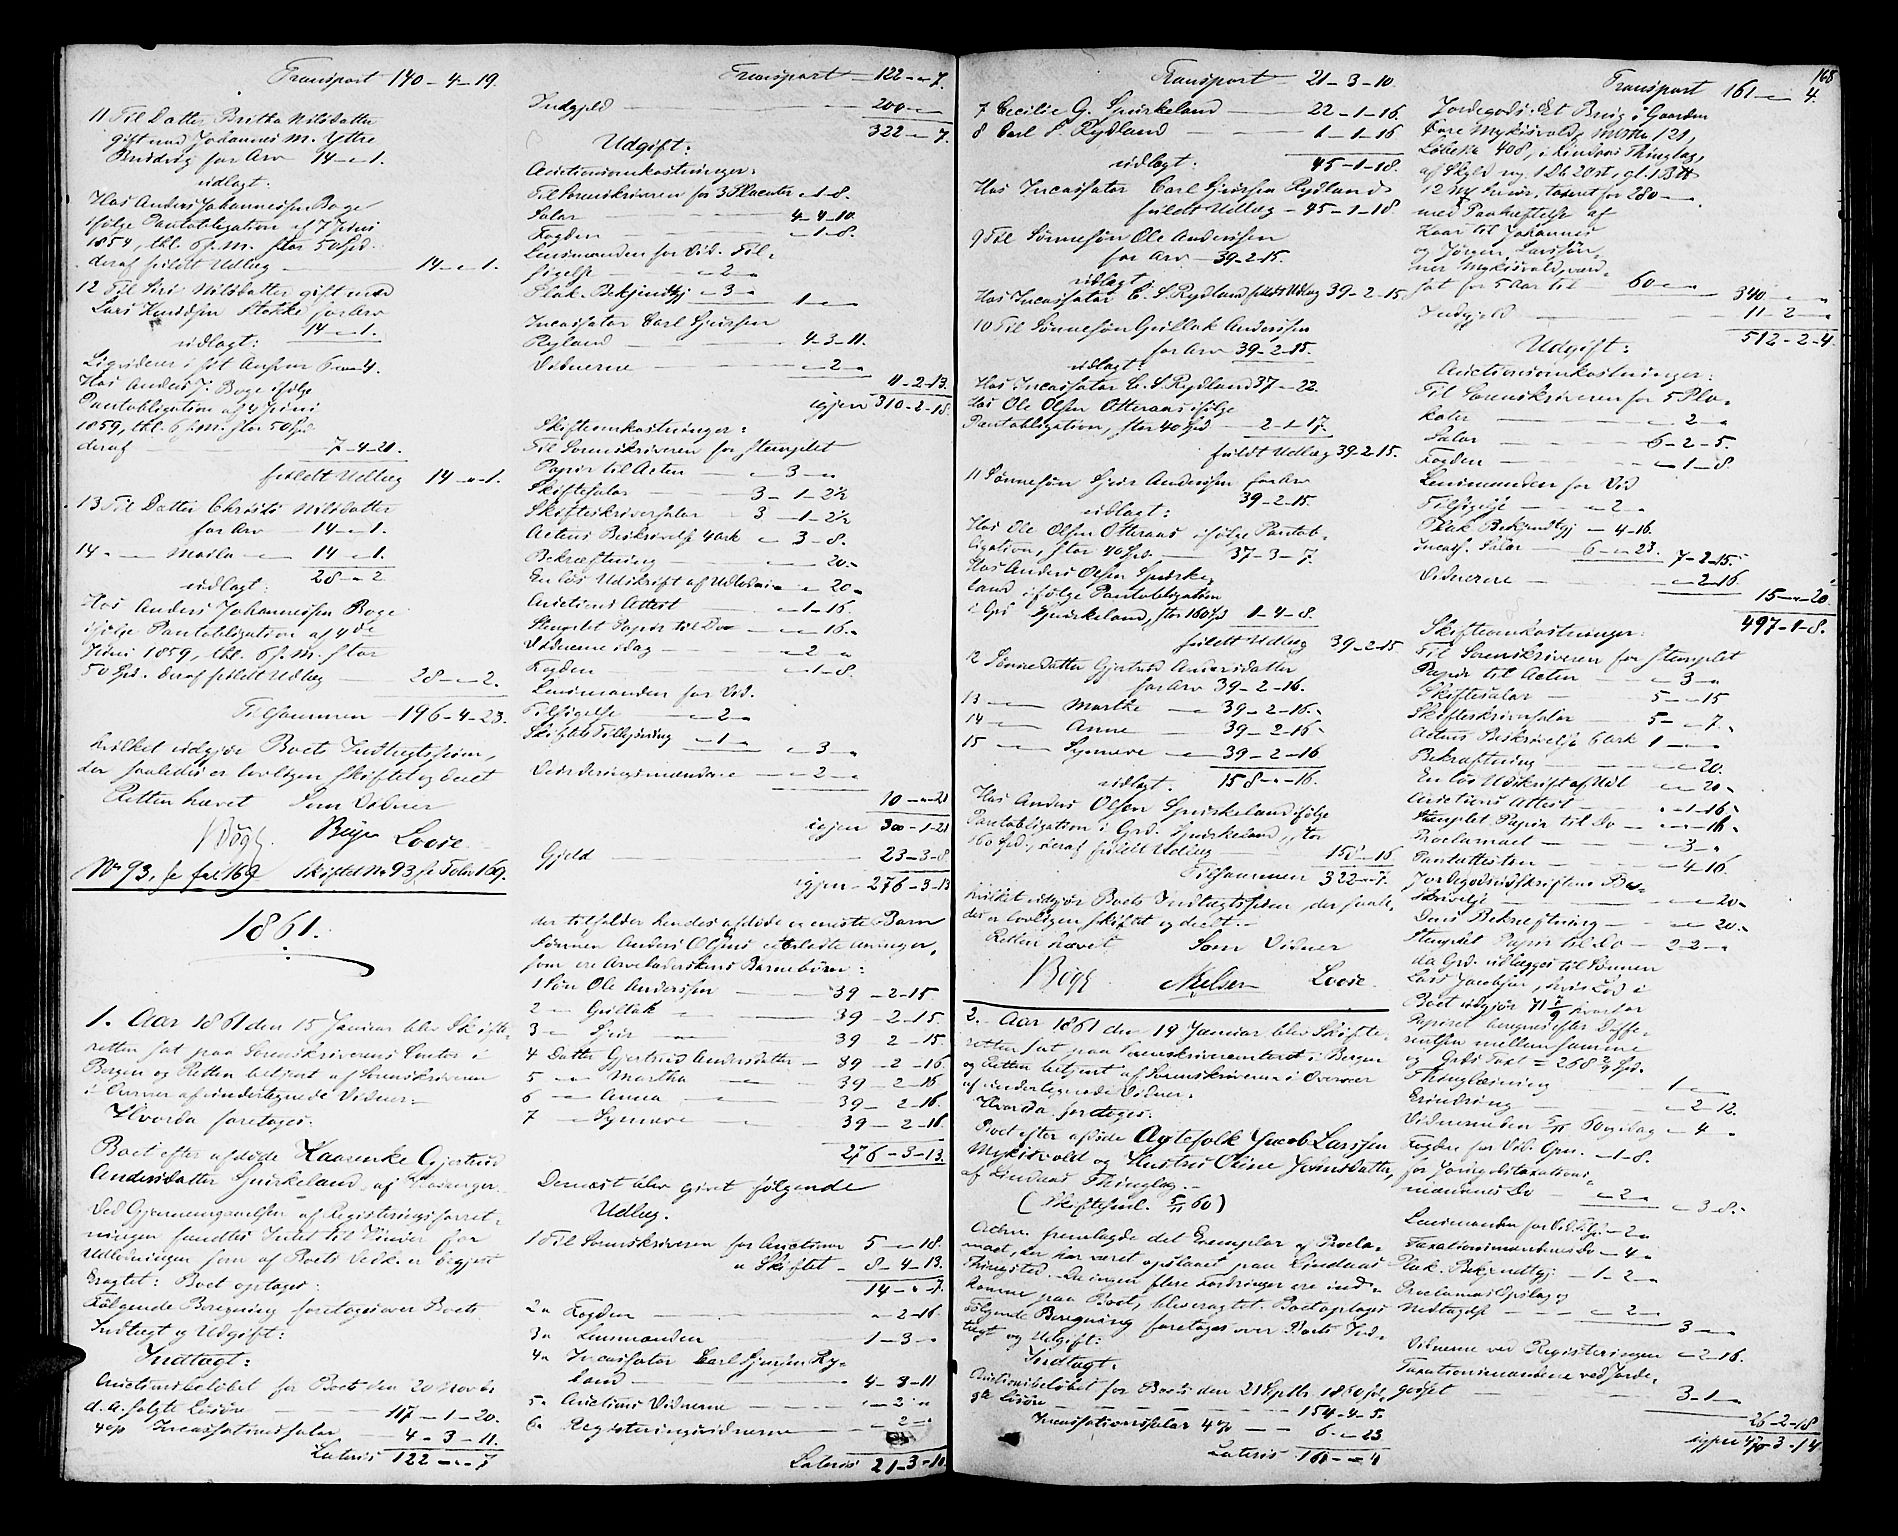 Transport 140 - 4 - 19.
11 Til Datter Britha Nilsdatter
gift med Johannes M. Yttre
Bruvig for Arv 14 - " - 1.
udlagt:
Hos Anders Johannessen Boge
ifølge Pantobligation af 7 Juni
1854, thl. 6 f. M. stor 50 Spd.
deraf fuldt Udlæg 14 - " - 1.
12 Til Siri Nilsdatter gift med
Lars Knudsen Stokke for Arv
14 - " - 1.
udlagt:
Hos Anders J. Boge ifølge
Pantobligation af 4 Juni
1859, thl. 6 f. M. stor 50 Spd.
deraf 7 - 4 - 21.
fuldt Udlæg 14 - " - 1.
13 Til Datter Christi Nilsdatter
for Arv 14 - " - 1.
14 - " - Marta - " - 14 - " - 1.
28 - " - 2
udlagt:
Hos Anders Johannessen Boge
ifølge Pantobligation af 4de
Juni 1859, thl. 6 f. M. stor
50 Spd. deraf fuldt Udlæg 28 - " - 2.
Tilsammen 196 - 4 - 23.
hvilket udgjør Boets Indtægtssum,
der saaledes er lovligen skiftet og deelt
Retten hævet Som Vidner
Bøgh. Beyer Loose.
No 93, se fol 169 Skiftet No 93 se Folio 169.
1861.
1. Aar 1861 den 15 Januar blev Skifte-
retten sat paa Sorenskriverens Contor i
Bergen og Retten betjent af Sorenskriveren
i Overvær af undertegnede Vidner:
Hvorda foretages:
Boet efter afdøde Kaarenke Gjertrud
Andersdatter Spirkeland af Hosanger.
Ved Gjennemgaaelsen af Registeringsforret-
ningen fandtes Intet til Hinder for
Udlodningen som af Boets Vedk. er begjert
Eragtet: Boet optages:
Følgende Beregning foretages over Boets
Indtægt og Udgift:
Indtægt:
Auctionsbeløbet for Boets den 20 Novbr
d. A. solgte Løsøre 117 - 1 - 20.
4 % Incassationssalar 4 - 3 - 11.
Lateris 122 - " - 7
Transport 122 - " - 7.
Indgjeld 200 - " - "
322 - " - 7.
Udgift:
Auctionsomkostninger:
Til Sorenskriveren for 3 Placater " - 1 - 8.
Salar 4 - 4 - 10.
Fogden " - 1 - 8.
Lensmanden for Vid. Til-
sigelse " - 2 - "
Plak. Bekjendtgj. " - 3 - " 1 - " - "
Incassator Carl Sjursen
Ryland 4 - 3 - 11.
Vidnerne " - 2 - "
11 - 2 - 13.
igjen 310 - 2 - 18.
Skifteomkostninger:
Til Sorenskriveren for stemplet
Papir til Acten " - 3 - "
Skiftesalar 3 - 1 - 2½
Skifteskriversalar 3 - 1 - 2½
Actens Beskrivelse 4 Ark " - 3 - 8.
Bekræftning " - " - 20.
En løs Udskrift af Udlodn. " - " - 20.
Auctions Attest " - 1 - 16.
Stemplet Papir til Do " - " - 16.
Vidnerne idag " - 2 - "
Fogden " - 1 - 8.
Lensmanden for Vid.
Tilsigelse " - 2 - "
Skiftets Tillysning " - 1 - " " - 3 - "
Vurderingsmændene " - 2 - "
10 - " - 21
igjen 300 - 1 - 21
Gjeld 23 - 3 - 8.
igjen 276 - 3 - 13
der tilfalder hendes afdøde eneste Barn
Sønnen Anders Olsens efterladte Arvinger,
som ere Arveladerskens Barnebørn:
1 Søn Ole Anderssen 39 - 2 - 15
2 - " - Guttak - " - 39 - 2 - 15.
3 - " - Sjur - " - 39 - 2 - 15
4 Datter Gjertrud Andersdatter 39 - 2 - 16.
5 - " - Martha - " - 39 - 2 - 16
6 - " - Anna - " - 39 - 2 - 16.
7 - " - Synneve - " - 39 - 2 - 16
276 - 3 - 13.
Dernæst blev givet følgende
Udlæg.
1 Til Sorenskriveren for Auctionen 5 - " - 18.
" Skiftet 8 - 4 - 13.
14 - " - 7.
2 " Fogden " - 2 - 16.
3 " Lensmanden 1 - 3 - "
4 " Incassator Carl Sjursen Ry-
land 4 - 3 - 11
5 " Auctions Vidnerne " - 2 - "
6 " Registeringsvidnerne " - 2 - "
Lateris 21 - 3 - 10.
Transport 21 - 3 - 10.
7 Cecilie G. Spirkeland 22 - 1 - 16.
8 Carl S Rydland 1 - 1 - 16
45 - 1 - 18.
udlagt:
Hos Incassator Carl Sjursen Rydland
fuldt Udlæg - 45 - 1 - 18.
9 Til Sønnesøn Ole Anderssen
for Arv - 39 - 2 - 15.
udlagt
Hos Incassator C. S. Rydland fuldt Udlæg 39 - 2 - 15
10 Til Sønnesøn Guttak Anderssen
for Arv 39 - 2 - 15.
udlagt:
Hos Incassator C. S. Rydland 37 - " - 22
Hos Ole Olsen Otteraas ifølge
Pantobligation, stor 40 Spd 2 - 1 - 17.
fuldt Udlæg 39 - 2 - 15.
11 Sønnesøn Sjur Anderssen for Arv
39 - 2 - 15.
udlagt:
Hos Ole Olsen Otteraas ifølge Pantob-
ligation, stor 40 Spd. 37 - 3 - 7.
Hos Anders Olsen Spirke-
land ifølge Pantobligation
i Grd Spirkeland, stor 160 Spd 1 - 4 - 8.
fuldt Udlæg 39 - 2 - 15
12 Sønnedatter Gjertrud Andersdatter
for Arv 39 - 2 - 16.
13 - " - Marthe - " - 39 - 2 - 16.
14 - " - Anne - " - 39 - 2 - 16.
15 - " - Synneve - " - 39 - 2 - 16
udlagt. 158 - " - 16.
Hos Anders Olsen Spirkeland ifølge
Pantobligation i Grd. Spirkeland, stor
160 Spd., deraf fuldt Udlæg 158 - " - 16
Tilsammen 322 - " - 7.
hvilket udgjør Boets Indtægtssum, der saale-
des er lovligen skiftet og deelt.
Retten hævet Som Vidner
Bøgh Nielsen Loose.
2. Aar 1861 den 19 Januar blev Skifte-
retten sat paa Sorenskrivercontoret i Bergen
og Retten betjent af Sorenskriveren i Overvær
af undertegnede Vidner.
Hvorda foretoges:
Boet efter afdøde Ægtefolk Jacob Larssen
Mykisvold og Hustru Oline Joensdatter,
af Lindaas Thinglag.
(Skiftesml. 5/11 60)
Acten fremlagde det Exemplar af Procla-
maet, der har været opslaaet paa Lindaas
Thingsted. Da ingen flere Fordringer ere ind-
komne paa Boet, blev eragtet: Boet optages
Følgende Beregning foretages over Boets Ind-
tægt og Udgift:
Indtægt.
Auctionsbeløbet for Boets den 21 Septbr. 1860 sol-
gte Løsøre 154 - 4 - 5.
Incassationssalar 4 % 6 - " - 23
Lateris 161 - " - 4
168
Transport 161 - " - 4.
Jordegods: Et Brug i Gaarden
Øvre Mykisvold, Matr No 121,
Løbe No 408, i Lindaas Thinglag,
med Paahæftelse af
Kaar til Johannes
sat for 5 Aar til 60 - " - " 340 - " - "
Indgjeld 11 - 2 - "
512 - 2 - 4.
Udgift:
Auctionsomkostninger:
Til Sorenskriveren for 5 Pla-
kater " - 2 - "
Salar 6 - 2 - 5.
Fogden " - 1 - 8.
Lensmanden for Vid
Tilsigelse " - 2 - "
Plak. Bekjendtgj " - 4 - 16.
Incass. Salar 6 - " - 23. 7 - 2 - 15.
Vidnerne " - 2 - 16
15 - " - 20.
497 - 1 - 8.
Skifteomkostninger:
Til Sorenskriveren for stemplet
Papir til Acten " - 3 - "
Skiftesalar 5 - " - 15
Skifteskriversalar 5 - " - 7.
Actens Beskrivelse 6 Ark 1 - " - "
Bekræftning " - " - 20.
En løs Udskrift af Udl " - " - 20
Auctions Attest " - 1 - 16.
Stemplet Papir til Do " - " - 16.
Proclamaet " - 3 - "
Pantattesten " - 4 - 16.
Jordegodsudskriftens Be-
skrivelse " - " - 20.
Dens Bekræftning " - " - 20.
Stemplet Papir til Do 2 - 2 - "
da Grd. udlægges til Sønnen
Lars Jacobsen, hvis Lod i
Boet udgjør 71 7/9 hvorfor
Papiret beregnes efter Diffe-
rentsen mellem samme
og Grds Taxt = 268 2/9 Spd.
Thinglæsning 1 - " - "
Erindring " - 2 - 12.
Vidnerne den 5/11 60 og idag " - 4 - "
Fogden for Vid. Opn. " - 1 - 8.
for Jordgodstaxations-
mændenes Do " - 2 - " " - 3 - 8.
Lensmanden for Vid. Tils. " - 2 - "
Taxationsmændenes Do " - 4 - "
Plak. Bekjendtgj 1 - 2 - "
Proclamas Opslag og
Nedtagelse " - 2 - "
3 - " - "
Vidnerne ved Registeringen " - 2 - 16.
Taxationsmændene ved Jorde-
godset 3 - 1 - "
26 - 2 - 18
igjen 470 - 3 - 14